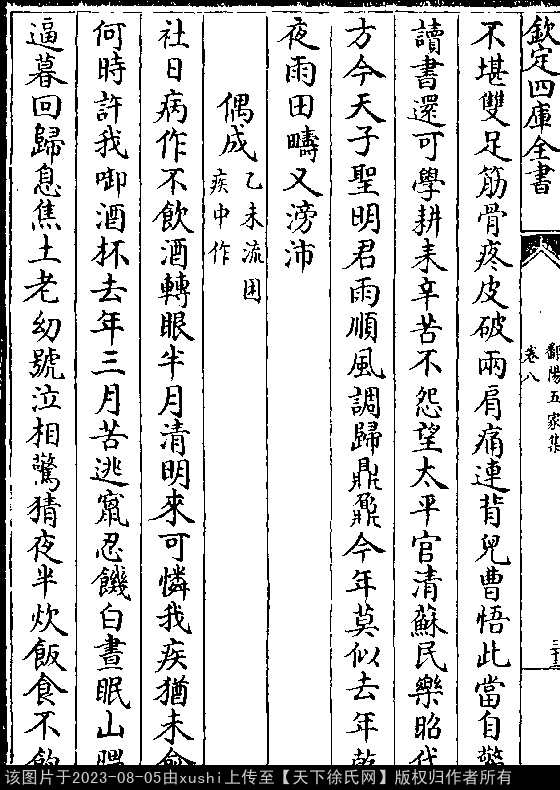 欽定四庫全書
鄱陽五家集
卷八
不堪雙足筋骨疼皮破兩肩痛連背兒曹悟此當自警
讀書還可學耕耒辛苦不怨望太平官清蘇民樂昭代
方今天子聖明君雨順風調歸鼎鼐今年莫似去年乾
夜雨田疇又滂沛
偶成
乙未流困
疾中作
社日病作不飲酒轉眼半月清明來可憐我疾猶未愈
何時許我啣酒杯去年三月苦逃竄忍饑白晝眠山隈
逼暮回歸息焦土老幼號泣相驚猜夜半炊飯食不飽
该图片于2023-08-05由xushi上传至【天下徐氏网】版权归作者所有